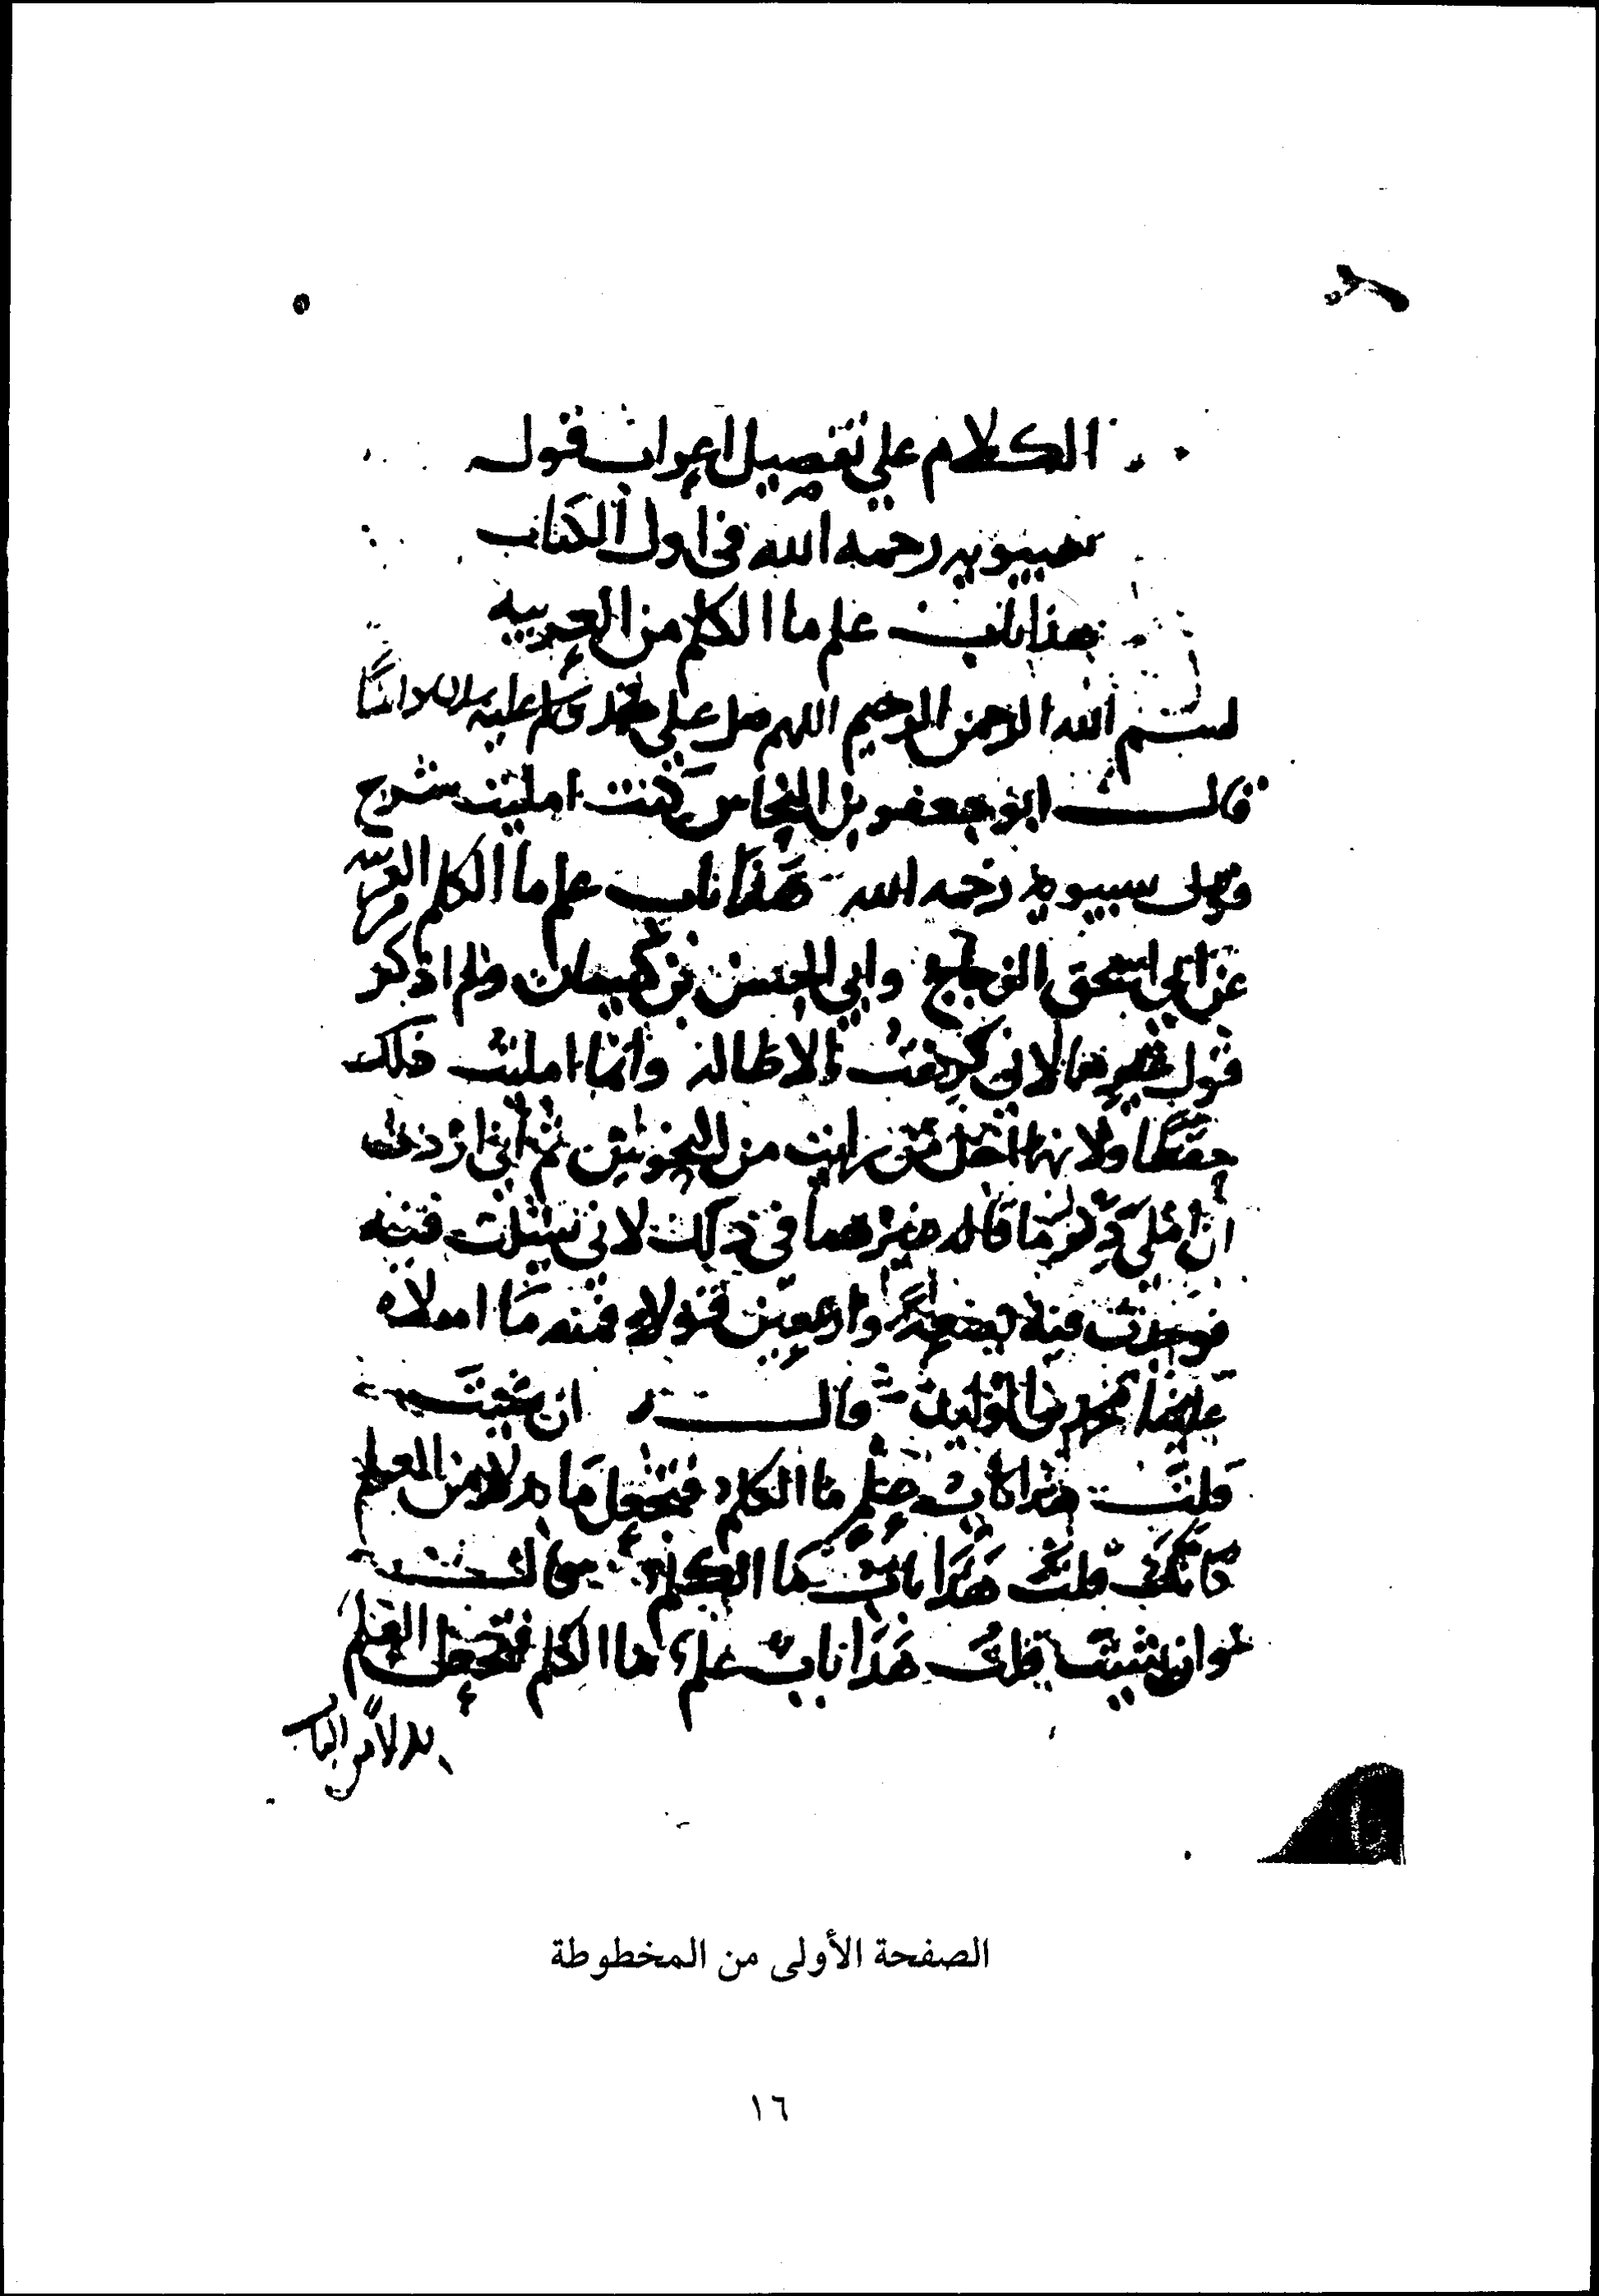 الكلام على تفصيل اعراب قول
سيبويه رحمه الله في اول الكتاب
هذا باب علم ما الكلم من العربيه
بسم الله الرحمن الرحيم اللهم صل على محمد وسلم عليه
قال ابو جعفر بن النحاس كنت امليت شرح
قول سيبويه رحمه الله هذا باب علم ما الكلم من العربية
عن ابي اسحق الزجاج وابي الحسن بن كيسان ولم اذكر
قول غيرهما لاني كرهت الاطالة وانما امليت ذلك
حفظا ولانهما من رايت من النحويين ثم اني اردت
ان املي ذكر ما قاله غيرهما في ذلك لاني سئلت فيه
فوجدت فيه بضعا واربعين قولا فمنه ما املاه
علينا محمد بن الوليد قال ان شيت
قلت هذا باب علم ما الكلم فتجعل ما بدلا من العلم
كانك قلت هذا باب ما الكلم قال
وان شيت قلت هذا باب علم ما الكلم فتجعل العلم
بدلا من الباب
الصفحة الأولى من المخطوطة
١٦